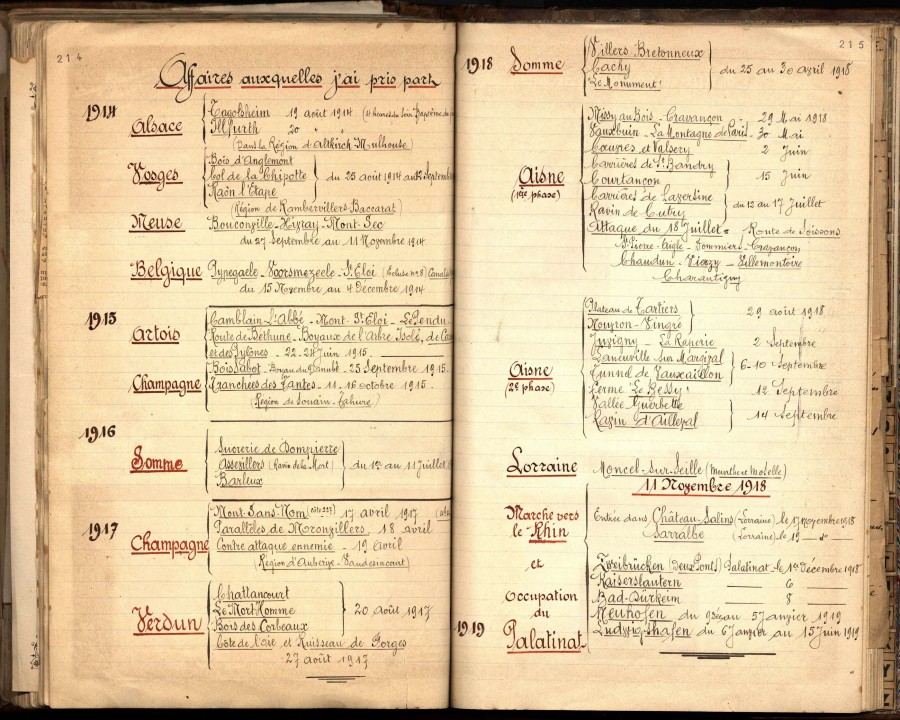 214
Affaires auxquelles j'ai pris part
1914
Alsace
Tagolsheim 19 août 1914
Illfurth 20 " "
(Dans la Région d'Altkirch Mulhouse)
Vosges
Bois d'Anglemont
Col de la Chipotte
Raôn l'Etape
du 25 août 1914 au 12 Septemb
(Région de Rambervillers-Baccarat)
Meuse
Bouconville - Mont-Sec
du 27 Septembre au 11 Novembre 1914
Belgique
Voormezeele - St Eloi (Ecluse no 8)
du 15 Novembre au 4 Décembre 1914
1915
Artois
Camblain-L'Abbé - Mont-St Eloi - Le Pendu
Route de Béthune - Boyaux de l'Arbre Isolé, de
et des Pylônes - 22-24 Juin 1915
Champagne
Bois Sabot - Boyau du Danube - 25 Septembre 1915.
Tranchées des Tantes - 11-16 octobre 1915.
(Région de Souain-Tahure)
1916
Somme
Sucrerie de Dompierre
Assevillers (Ravin de la Mort)
Barleux
du 1er au 11 Juillet
1917
Champagne
Mont-Sans-Nom (côte 227) 17 avril 1917
Parallèles de Moronvillers 18 avril
Contre attaque ennemie - 19 avril
(Région d'Auberive-Vaudesincourt)
Verdun
Chattancourt
Le Mort-Homme
Bois des Corbeaux
20 août 1917
Côte de l'Oie et Ruisseau de Forges
27 août 1917
215
1918
Somme
Villers Bretonneux
Cachy
Le Monument
du 25 au 30 avril 1918
Aisne
(1ère phase)
Missy au Bois - Cravançon - 29 Mai 1918
Vauxbuin - La Montagne de Paris - 30 Mai
Couvres et Valsery 2 Juin
Carrières de St Bandry
Courtançon
15 Juin
Carrière de Laversine
Ravin de Cutry
du 12 au 17 Juillet
Attaque du 18 Juillet = Route de Soissons
St Pierre-Aigle - Dommiers - Cravançon
Chaudun - Vierzy - Villemontoire
Charantigny
Aisne
(2e phase)
Plateau de Tartiers
Nouvron-Vingré
29 août 1918
Juvigny - La Raperie 2 Septembre
Laneuville sur Margival
Tunnel de Vauxaillon
6-10 Septembre
Ferme Le Bessy 12 Septembre
Vallée Guerbette
Ravin d'Alleval
14 Septembre
Lorraine
Moncel-sur-Seille (Meurthe et Moselle)
11 Novembre 1918
Marche vers
le Rhin
et
occupation
du
Palatinat
Entrée dans Château-Salins (Lorraine) le 17 novembre 1918
Sarralbe (Lorraine) le 19 — do —
Zweibrücken (Deux Ponts) Palatinat le 1er Décembre 1918
Kaiserslautern 6
Bad-Dürkeim 8
1919
Neuhofen du 9 Déc au 5 Janvier 1919
Ludwigshafen du 6 Janvier au 15 Juin 1919